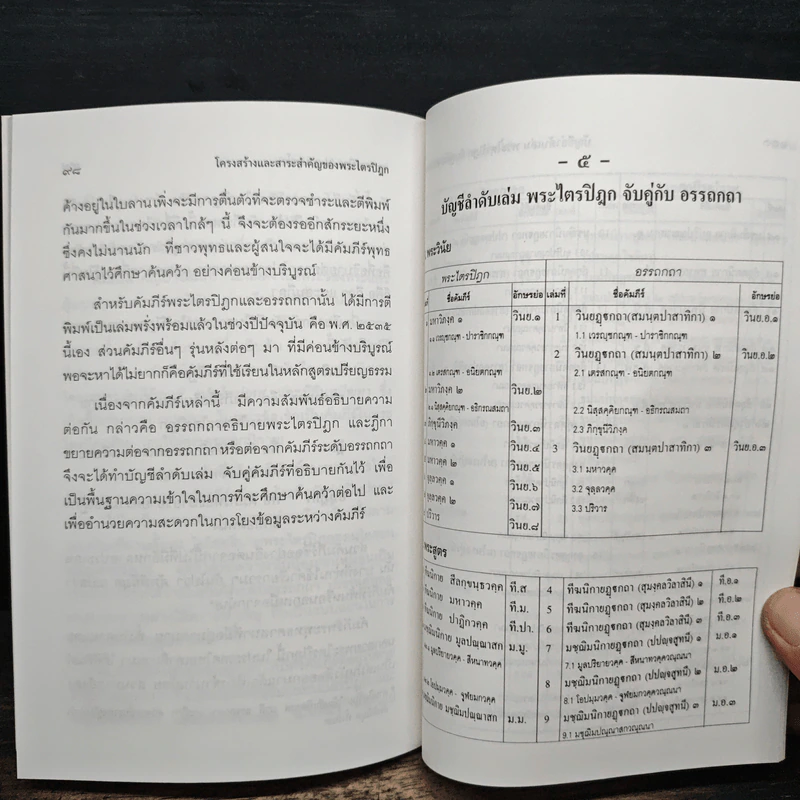 ๙๘ โครงสร้างและสาระสำคัญของพระไตรปิฎก
ค้างอยู่ในใบลาน เพิ่งจะมีการตื่นตัวที่จะตรวจชำระและตีพิมพ์
กันมากขึ้นในช่วงเวลาใกล้ๆ นี้ จึงจะต้องรออีกสักระยะหนึ่ง
ซึ่งคงไม่นานนัก ที่ชาวพุทธและผู้สนใจจะได้มีคัมภีร์พุทธ
ศาสนาไว้ศึกษาค้นคว้า อย่างค่อนข้างบริบูรณ์
สำหรับคัมภีร์พระไตรปิฎกและอรรถกถานั้น ได้มีการตี
พิมพ์เป็นเล่มพรั่งพร้อมแล้วในช่วงปีปัจจุบัน คือ พ.ศ. ๒๕๓๕
นี้เอง ส่วนคัมภีร์อื่นๆ รุ่นหลังต่อๆ มา ที่มีค่อนข้างบริบูรณ์
พอจะหาได้ไม่ยากก็คือคัมภีร์ที่ใช้เรียนในหลักสูตรเปรียญธรรม
เนื่องจากคัมภีร์เหล่านี้ มีความสัมพันธ์อธิบายความ
ต่อกัน กล่าวคือ อรรถกถาอธิบายพระไตรปิฎก และฎีกา
ขยายความต่อจากอรรถกถา หรือต่อจากคัมภีร์ระดับอรรถกถา
จึงจะได้ทำบัญชีลำดับเล่ม จับคู่คัมภีร์ที่อธิบายกันไว้ เพื่อ
เป็นพื้นฐานความเข้าใจในการที่จะศึกษาค้นคว้าต่อไป และ
เพื่ออำนวยความสะดวกในการโยงข้อมูลระหว่างคัมภีร์
- ๕ -
บัญชีลำดับเล่ม พระไตรปิฎก จับคู่กับ อรรถกถา
พระวินัย
พระไตรปิฎก อรรถกถา
ชื่อคัมภีร์ อักษรย่อ เล่มที่ ชื่อคัมภีร์ อักษรย่อ
มหาวิภงฺค ๑ วินย.๑ 1 วินยฏฺฐกถา(สมนฺตปาสาทิกา) ๑ วินย.อ.๑
เวรญฺชกณฺฑ - ปาราชิกกณฺฑ 1.1 เวรญฺชกณฺฑ - ปาราชิกกณฺฑ
2 วินยฏฺฐกถา (สมนฺตปาสาทิกา) ๒ วินย.อ.๒
เตรสกณฺฑ - อนิยตกณฺฑ 2.1 เตรสกณฺฑ - อนิยตกณฺฑ
มหาวิภงฺค ๒ วินย.๒
นิสฺสคฺคิยกณฺฑ - อธิกรณสมถา 2.2 นิสฺสคฺคิยกณฺฑ - อธิกรณสมถา
ภิกฺขุนีวิภงฺค วินย.๓ 2.3 ภิกฺขุนีวิภงฺค
มหาวคฺค ๑ วินย.๔ 3 วินยฏฺฐกถา (สมนฺตปาสาทิกา) ๓ วินย.อ.๓
มหาวคฺค ๒ วินย.๕ 3.1 มหาวคฺค
จุลฺลวคฺค ๑ วินย.๖ 3.2 จุลฺลวคฺค
จุลฺลวคฺค ๒ วินย.๗ 3.3 ปริวาร
ปริวาร วินย.๘
พระสูตร
สีลกฺขนฺธวคฺค ที.ส 4 ทีฆนิกายฏฺฐกถา (สุมงฺคลวิลาสินี) ๑ ที.อ.๑
มหาวคฺค ที.ม. 5 ทีฆนิกายฏฺฐกถา (สุมงฺคลวิลาสินี) ๒ ที.อ.๒
ปาฏิกวคฺค ที.ปา. 6 ทีฆนิกายฏฺฐกถา (สุมงฺคลวิลาสินี) ๓ ที.อ.๓
มูลปณฺณาสก ม.มู. 7 มชฺฌิมนิกายฏฺฐกถา (ปปญฺจสูทนี) ๑ ม.อ.๑
มูลปริยายวคฺค - สีหนาทวคฺค 7.1 มูลปริยายวคฺค - สีหนาทวคฺควณฺณนา
8 มชฺฌิมนิกายฏฺฐกถา (ปปญฺจสูทนี) ๒ ม.อ.๒
โอปมฺมวคฺค - จูฬยมกวคฺค 8.1 โอปมฺมวคฺค - จูฬยมกวคฺควณฺณนา
มชฺฌิมปณฺณาสก ม.ม. 9 มชฺฌิมนิกายฏฺฐกถา (ปปญฺจสูทนี) ๓ ม.อ.๓
9.1 มชฺฌิมปณฺณาสกวณฺณนา